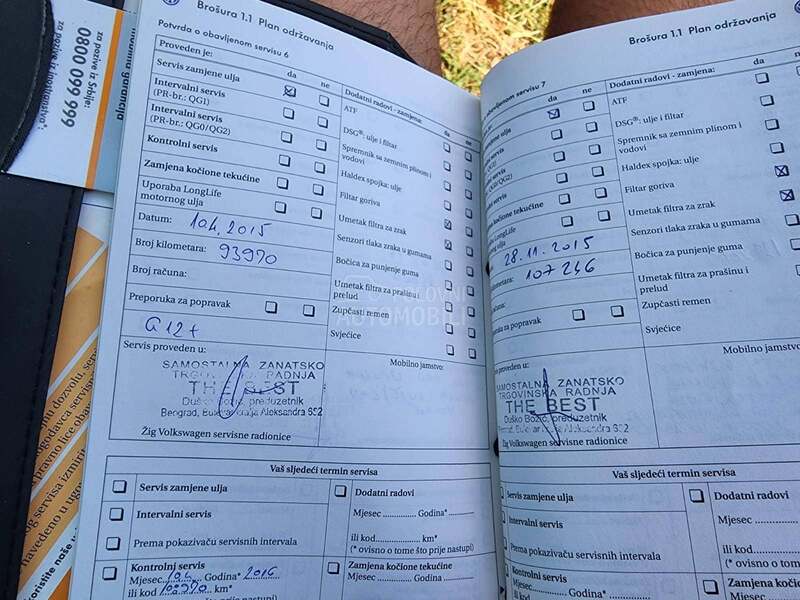 mobilna garancija
za pozive iz Srbije:
0800 099 999
za pozive iz inostranstva*:
Brošura 1.1 Plan održavanja
Potvrda o obavljenom servisu 6
Proveden je:
da ne
Servis zamjene ulja
Intervalni servis
(PR-br.: QG1)
Intervalni servis
(PR-br.: QG0/QG2)
Kontrolni servis
Zamjena kočione tekućine
Uporaba LongLife
motornog ulja
Datum:
2015
Broj kilometara: 93970
Broj računa:
Preporuka za popravak
G 12+
Servis proveden u:
SAMOSTALNA ZANATSKO
TRGOVINSKA RADNJA
THE BEST
Duško Božić, preduzetnik
Beograd, Bulevar kralja Aleksandra 652
Žig Volkswagen servisne radionice
Dodatni radovi - zamjena:
da ne
ATF
DSG®: ulje i filtar
Spremnik sa zemnim plinom i
vodovi
Haldex spojka: ulje
Filtar goriva
Umetak filtra za zrak
Senzori tlaka zraka u gumama
Bočica za punjenje guma
Umetak filtra za prašinu i
prelud
Zupčasti remen
Svjećice
Mobilno jamstvo:
POLOVNI
AUTOMOBILI
Vaš sljedeći termin servisa
Servis zamjene ulja
Intervalni servis
Prema pokazivaču servisnih intervala
Kontrolni servis
Mjesec Godina* 2016
ili kod km*
Dodatni radovi
Mjesec Godina*
ili kod km*
(* ovisno o tome što prije nastupi)
Zamjena kočione tekućine
Mjesec Godina*
Brošura 1.1 Plan održavanja
obavljenom servisu 7
da ne
ulja
QG2)
kočione tekućine
LongLife
ulja
28.11.2015
107246
za popravak
proveden u:
SAMOSTALNA ZANATSKO
TRGOVINSKA RADNJA
THE BEST
Duško Božić, preduzetnik
Aleksandra 652
Žig Volkswagen servisne radionice
Dodatni radovi - zamjena:
ATF
DSG®: ulje i filtar
Spremnik sa zemnim plinom i
vodovi
Haldex spojka: ulje
Filtar goriva
Umetak filtra za zrak
Senzori tlaka zraka u gumama
Bočica za punjenje guma
Umetak filtra za prašinu i
prelud
Zupčasti remen
Svjećice
Mobilno jamstvo:
Vaš sljedeći termin servisa
Servis zamjene ulja
Intervalni servis
Prema pokazivaču servisnih intervala
Kontrolni servis
Mjesec Godina*
Dodatni radovi
Mjesec
ili kod
(* ovisno o tome
Zamjena kočione
Mjesec